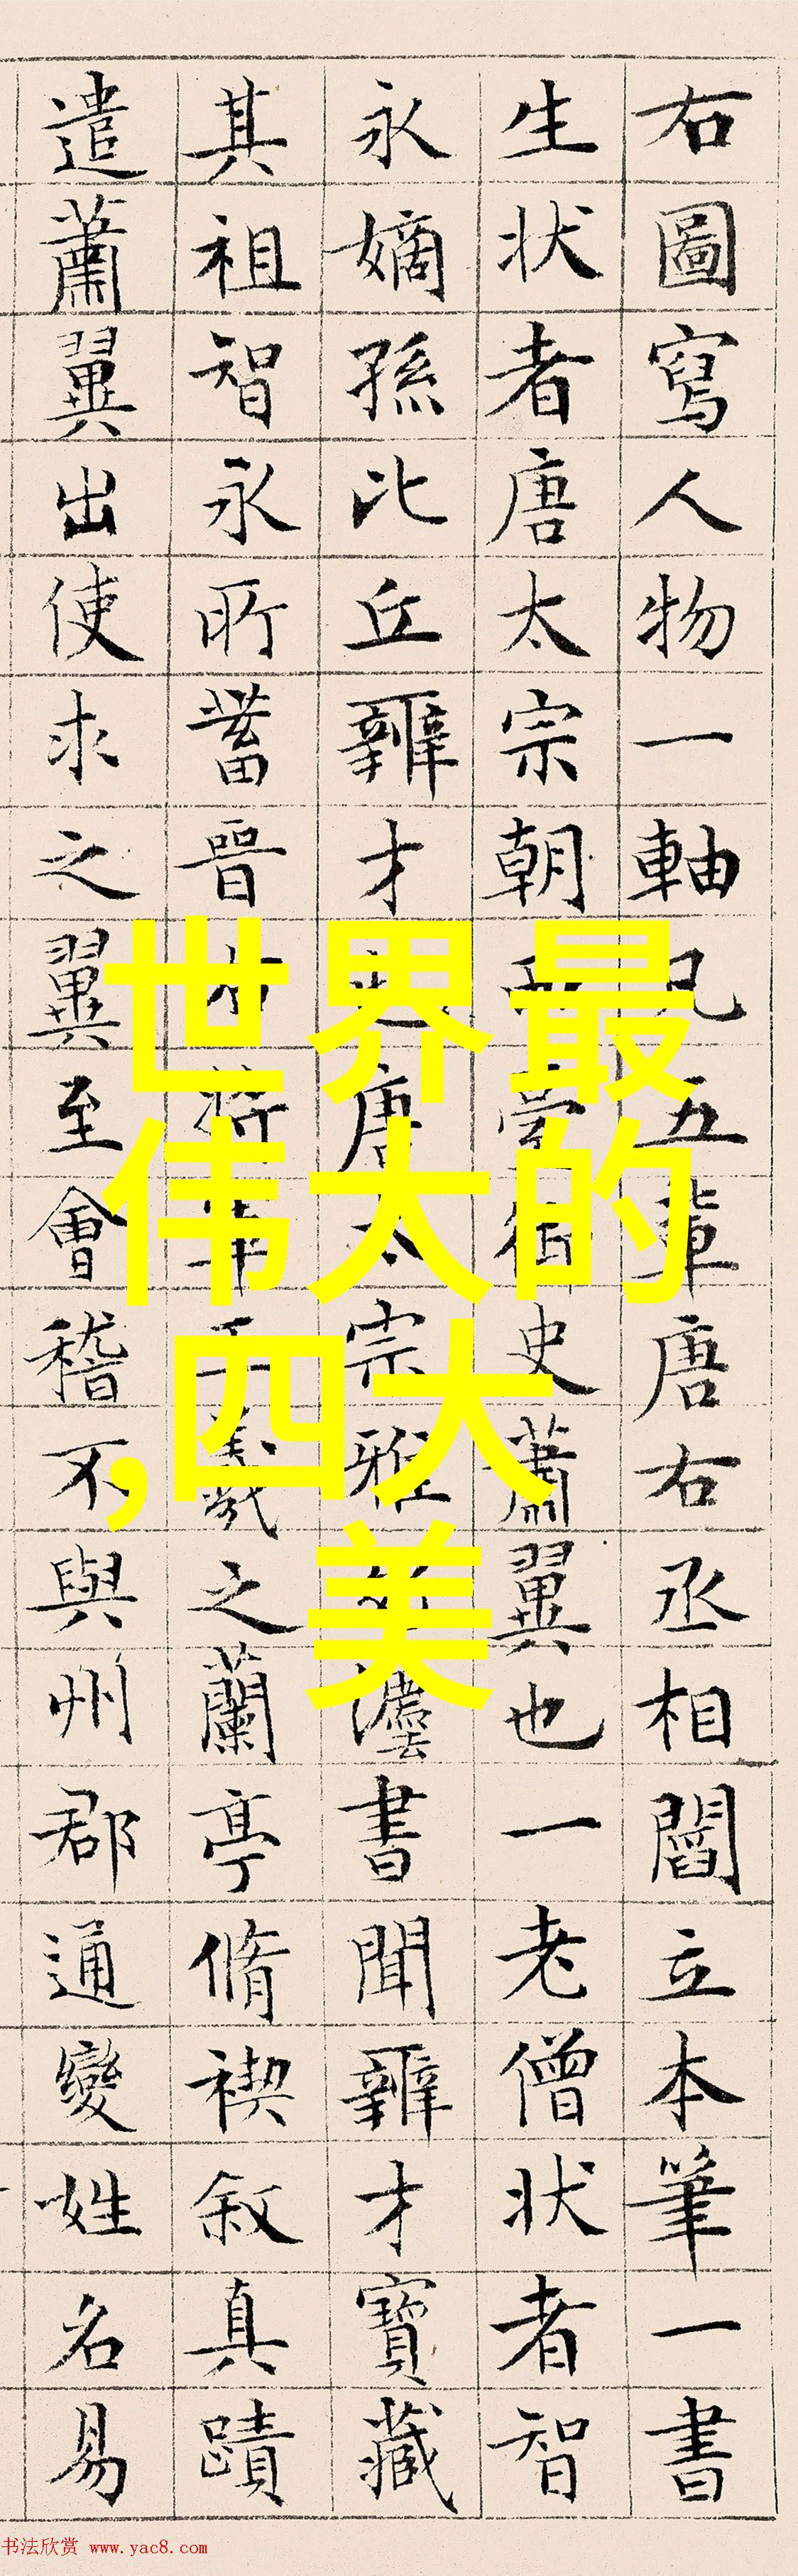 右圖寫人物一軸凡五輩唐右丞相閻立本筆一書
生状者唐太宗朝西臺御史蕭翼也一老僧状者智
永嫡孫比丘辯才也唐太宗雅好法書聞辯才寶藏
其祖智永所蓄晉右將軍王羲之蘭亭脩禊叙真蹟
遣蕭翼出使求之翼至會稽不與州郡通變姓名易
世界最
伟大的
,四大
美
书法欣赏 www.yac8.com